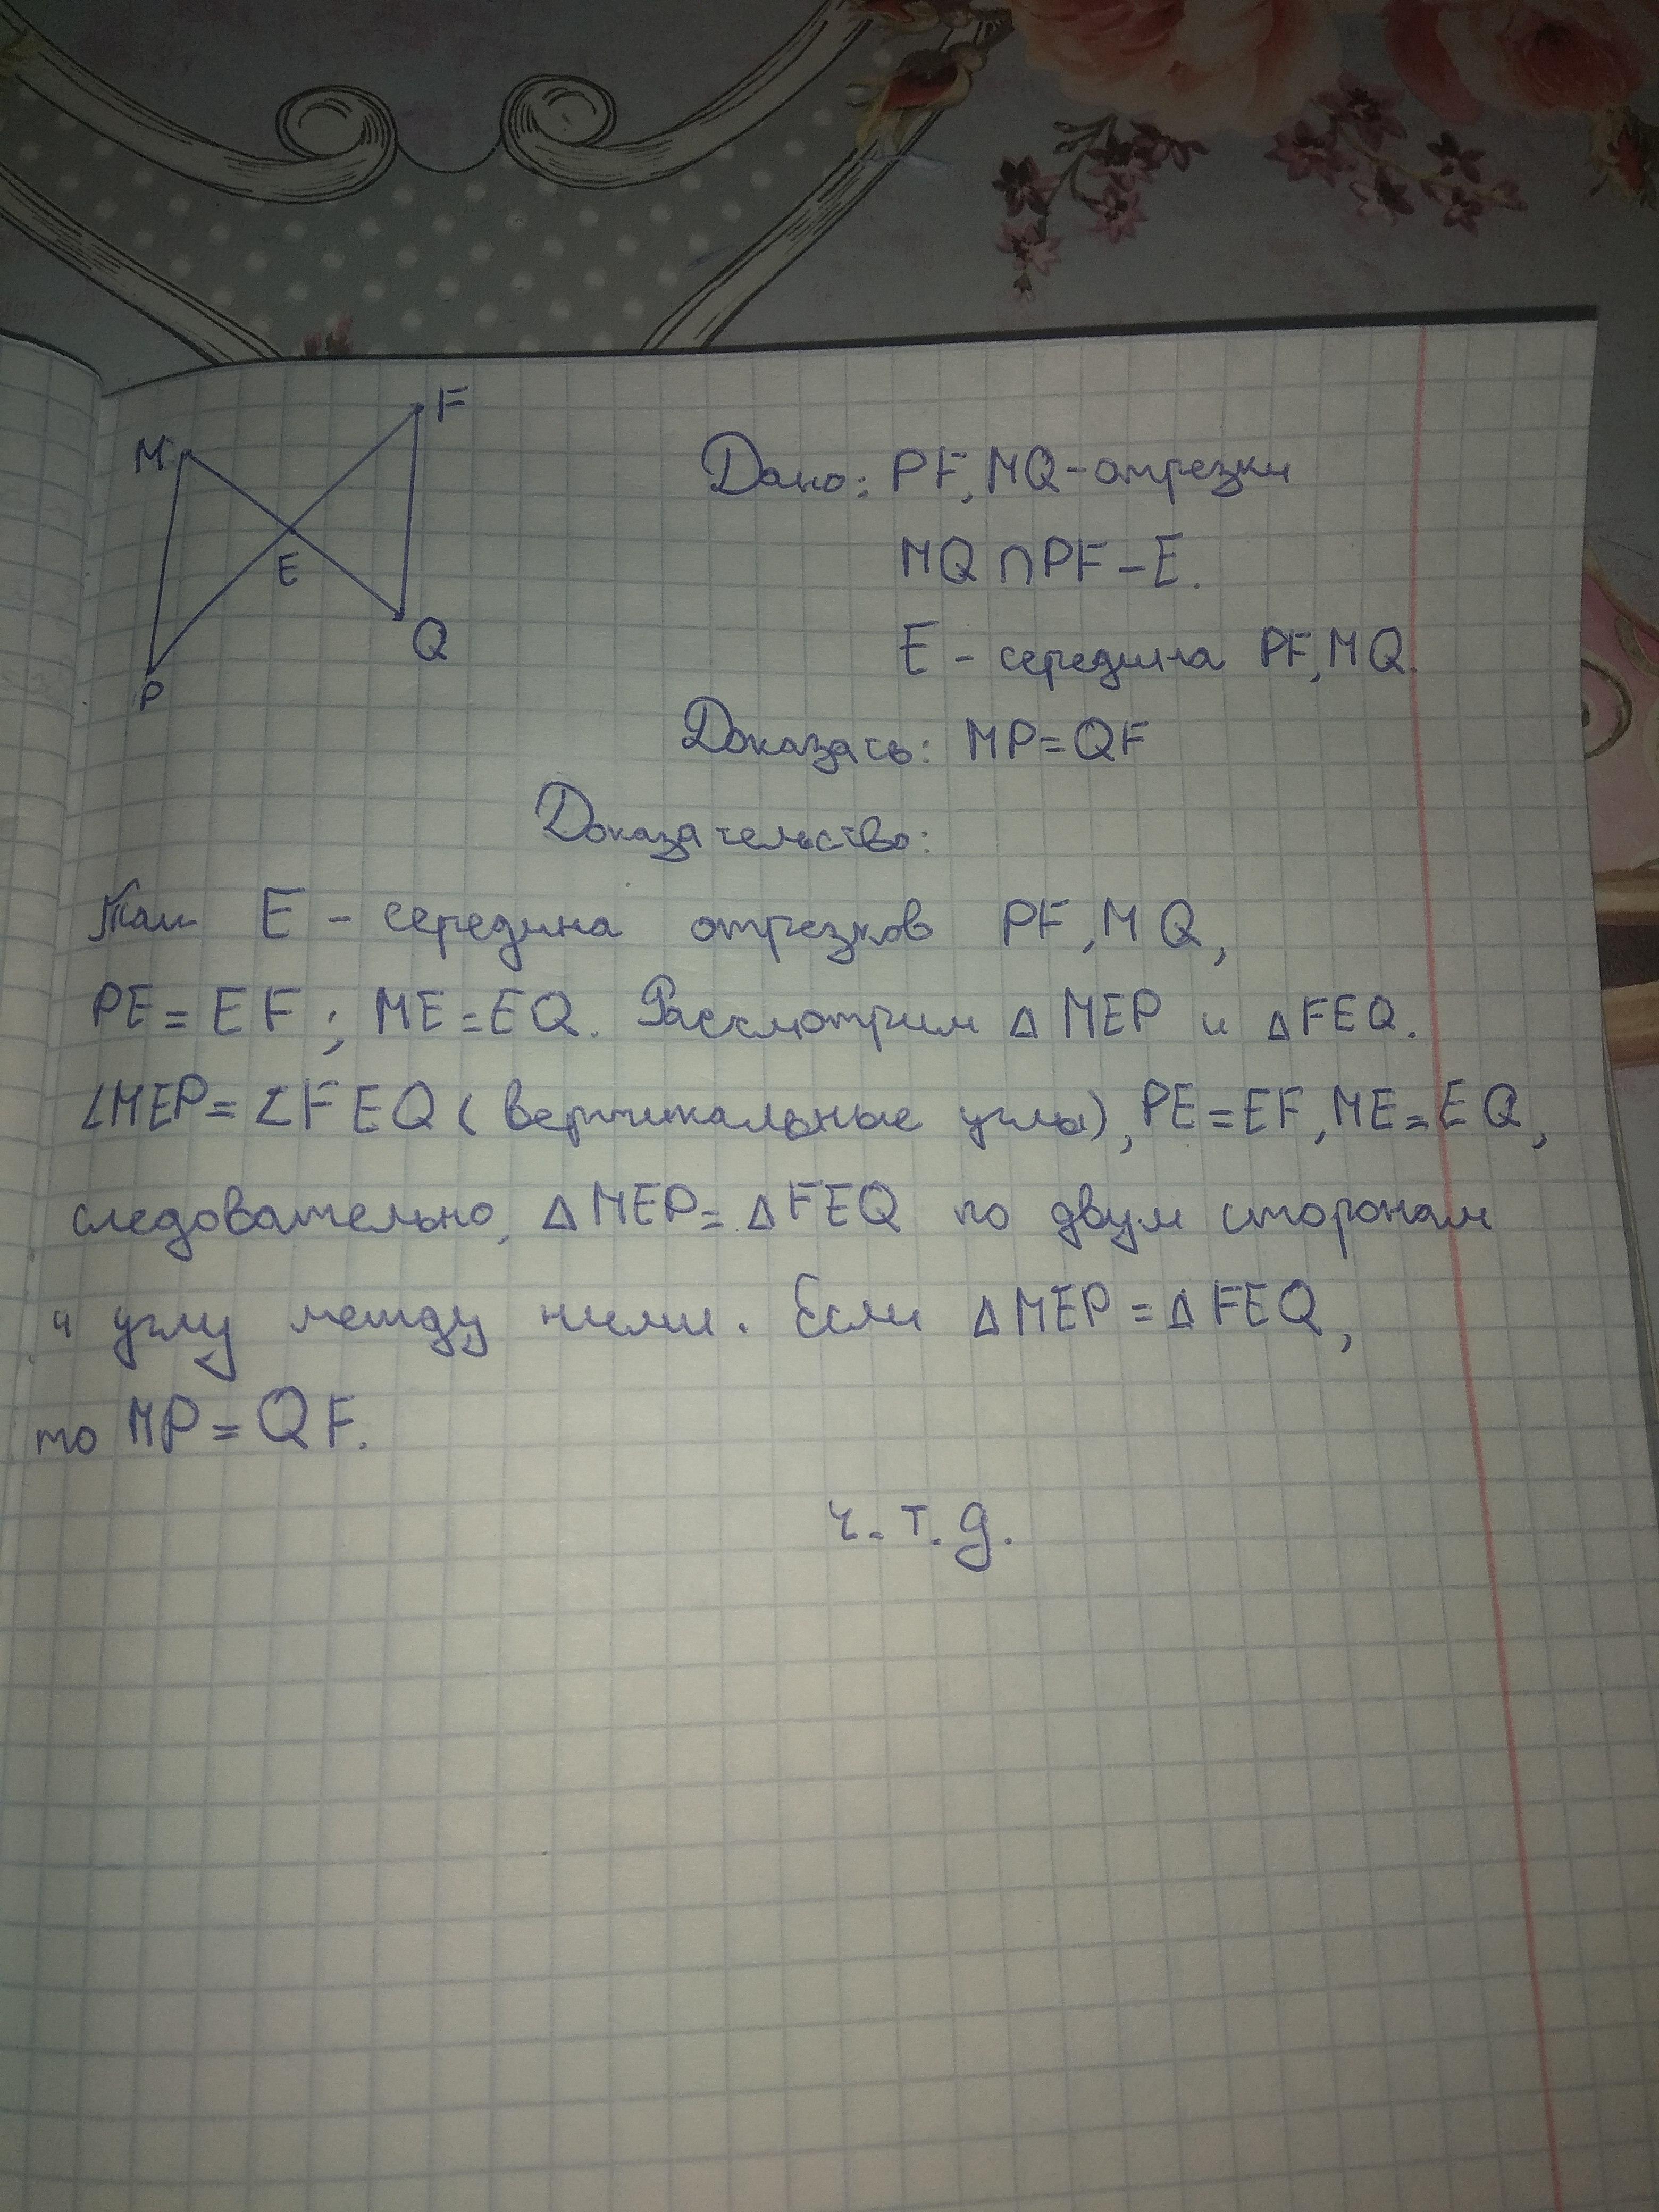 M
F
E
Q
P
Дано: PF, MQ - отрезки
MQ ∩ PF - E.
E - середина PF, MQ.
Доказать: MP = QF
Доказательство:
E - середина отрезков PF, MQ,
PE = EF; ME = EQ. Рассмотрим Δ MEP и Δ FEQ.
∠MEP = ∠FEQ (вертикальные углы), PE = EF, ME = EQ,
следовательно, Δ MEP = Δ FEQ по двум сторонам
и углу между ними. Если Δ MEP = Δ FEQ,
то MP = QF.
ч. т. д.